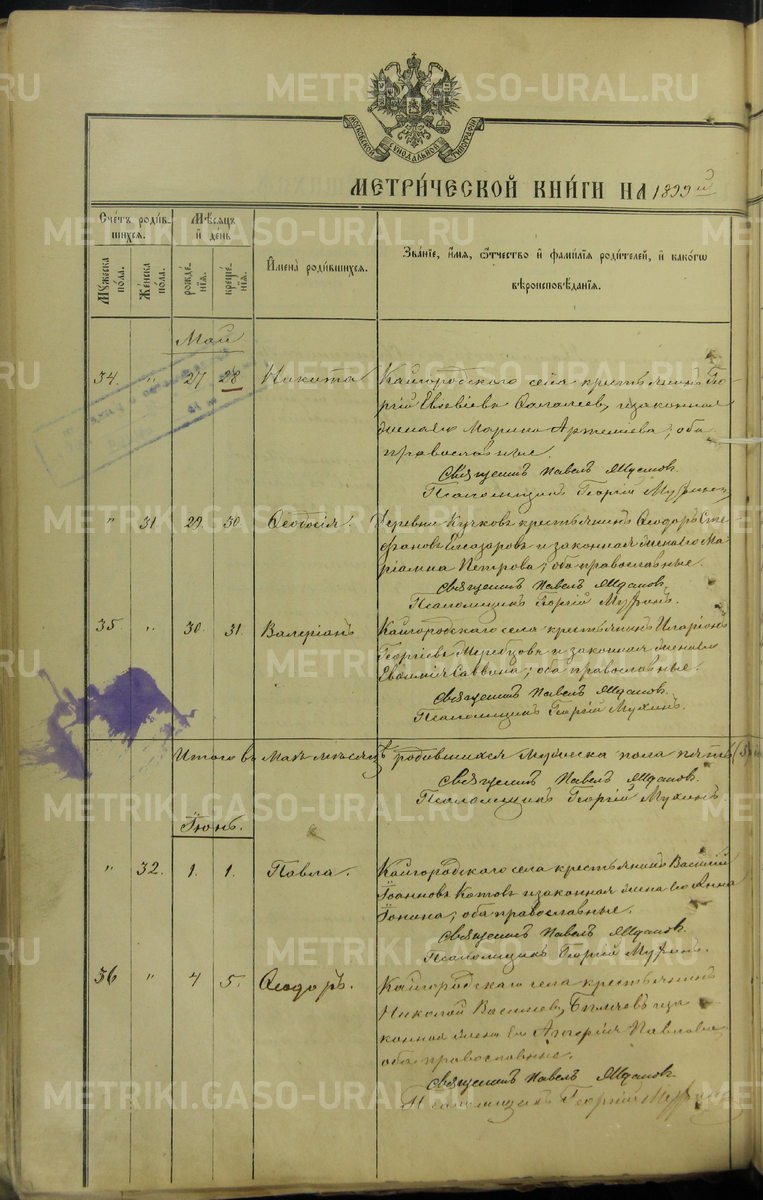 METRIKI.GASO-URAL.RU
МОСКОВСКОЙ СѴНОДАЛЬНОЙ ТИПОГРАФІИ
МЕТРИ́ЧЕСКОЙ КНИ́ГИ НА 1899 й
Сче́тъ роди́вшихся.
Мꙋ́жеска по́ла.
Же́нска по́ла.
Мѣ́сяцъ и҆ де́нь
рожде́нїя.
креще́нїя.
И҆мена̀ роди́вшихся.
Зва́нїе, и҆́мя, ѻ҆́тчество и҆ фами́лїя роди́телей, и҆ како́гѡ
вѣроисповѣ́данїя.
Май
34. " 27 28 Никита
Кайгородскаго села крестьянинъ Ге-
оргій законная
жена его Марина Артеміева; оба
православные.
Священникъ Павелъ
Псаломщикъ Георгій Мухинъ
" 31 29 30. Ѳеодосія.
Деревни Кучковъ крестьянинъ Ѳеодоръ Сте-
фановъ Елеазаровъ и законная жена его Ма-
ріамна Петрова; оба православные.
Священникъ Павелъ
Псаломщикъ Георгій Мухинъ.
35. " 30. 31. Валеріанъ
Кайгородскаго села крестьянинъ Иларіонъ
Георгіевъ и законная жена его
Евѳимія Саввина; оба православные.
Священникъ Павелъ
Псаломщикъ Георгій Мухинъ.
Итого въ Маѣ мѣсяцѣ родившихся мужеска пола пять (5)
Священникъ Павелъ
Псаломщикъ Георгій Мухинъ.
Іюнь.
" 32. 1. 1. Павла.
Кайгородскаго села крестьянинъ Василій
Іоанновъ Котовъ и законная жена его Анна
Іонина; оба православные.
Священникъ Павелъ
Псаломщикъ Георгій Мухинъ.
36 " 4 5. Ѳеодоръ.
Кайгородскаго села крестьянинъ
Николай Василіевъ и за-
конная жена его Павлова
оба православные.
Священникъ Павелъ
Псаломщикъ Георгій Мухинъ